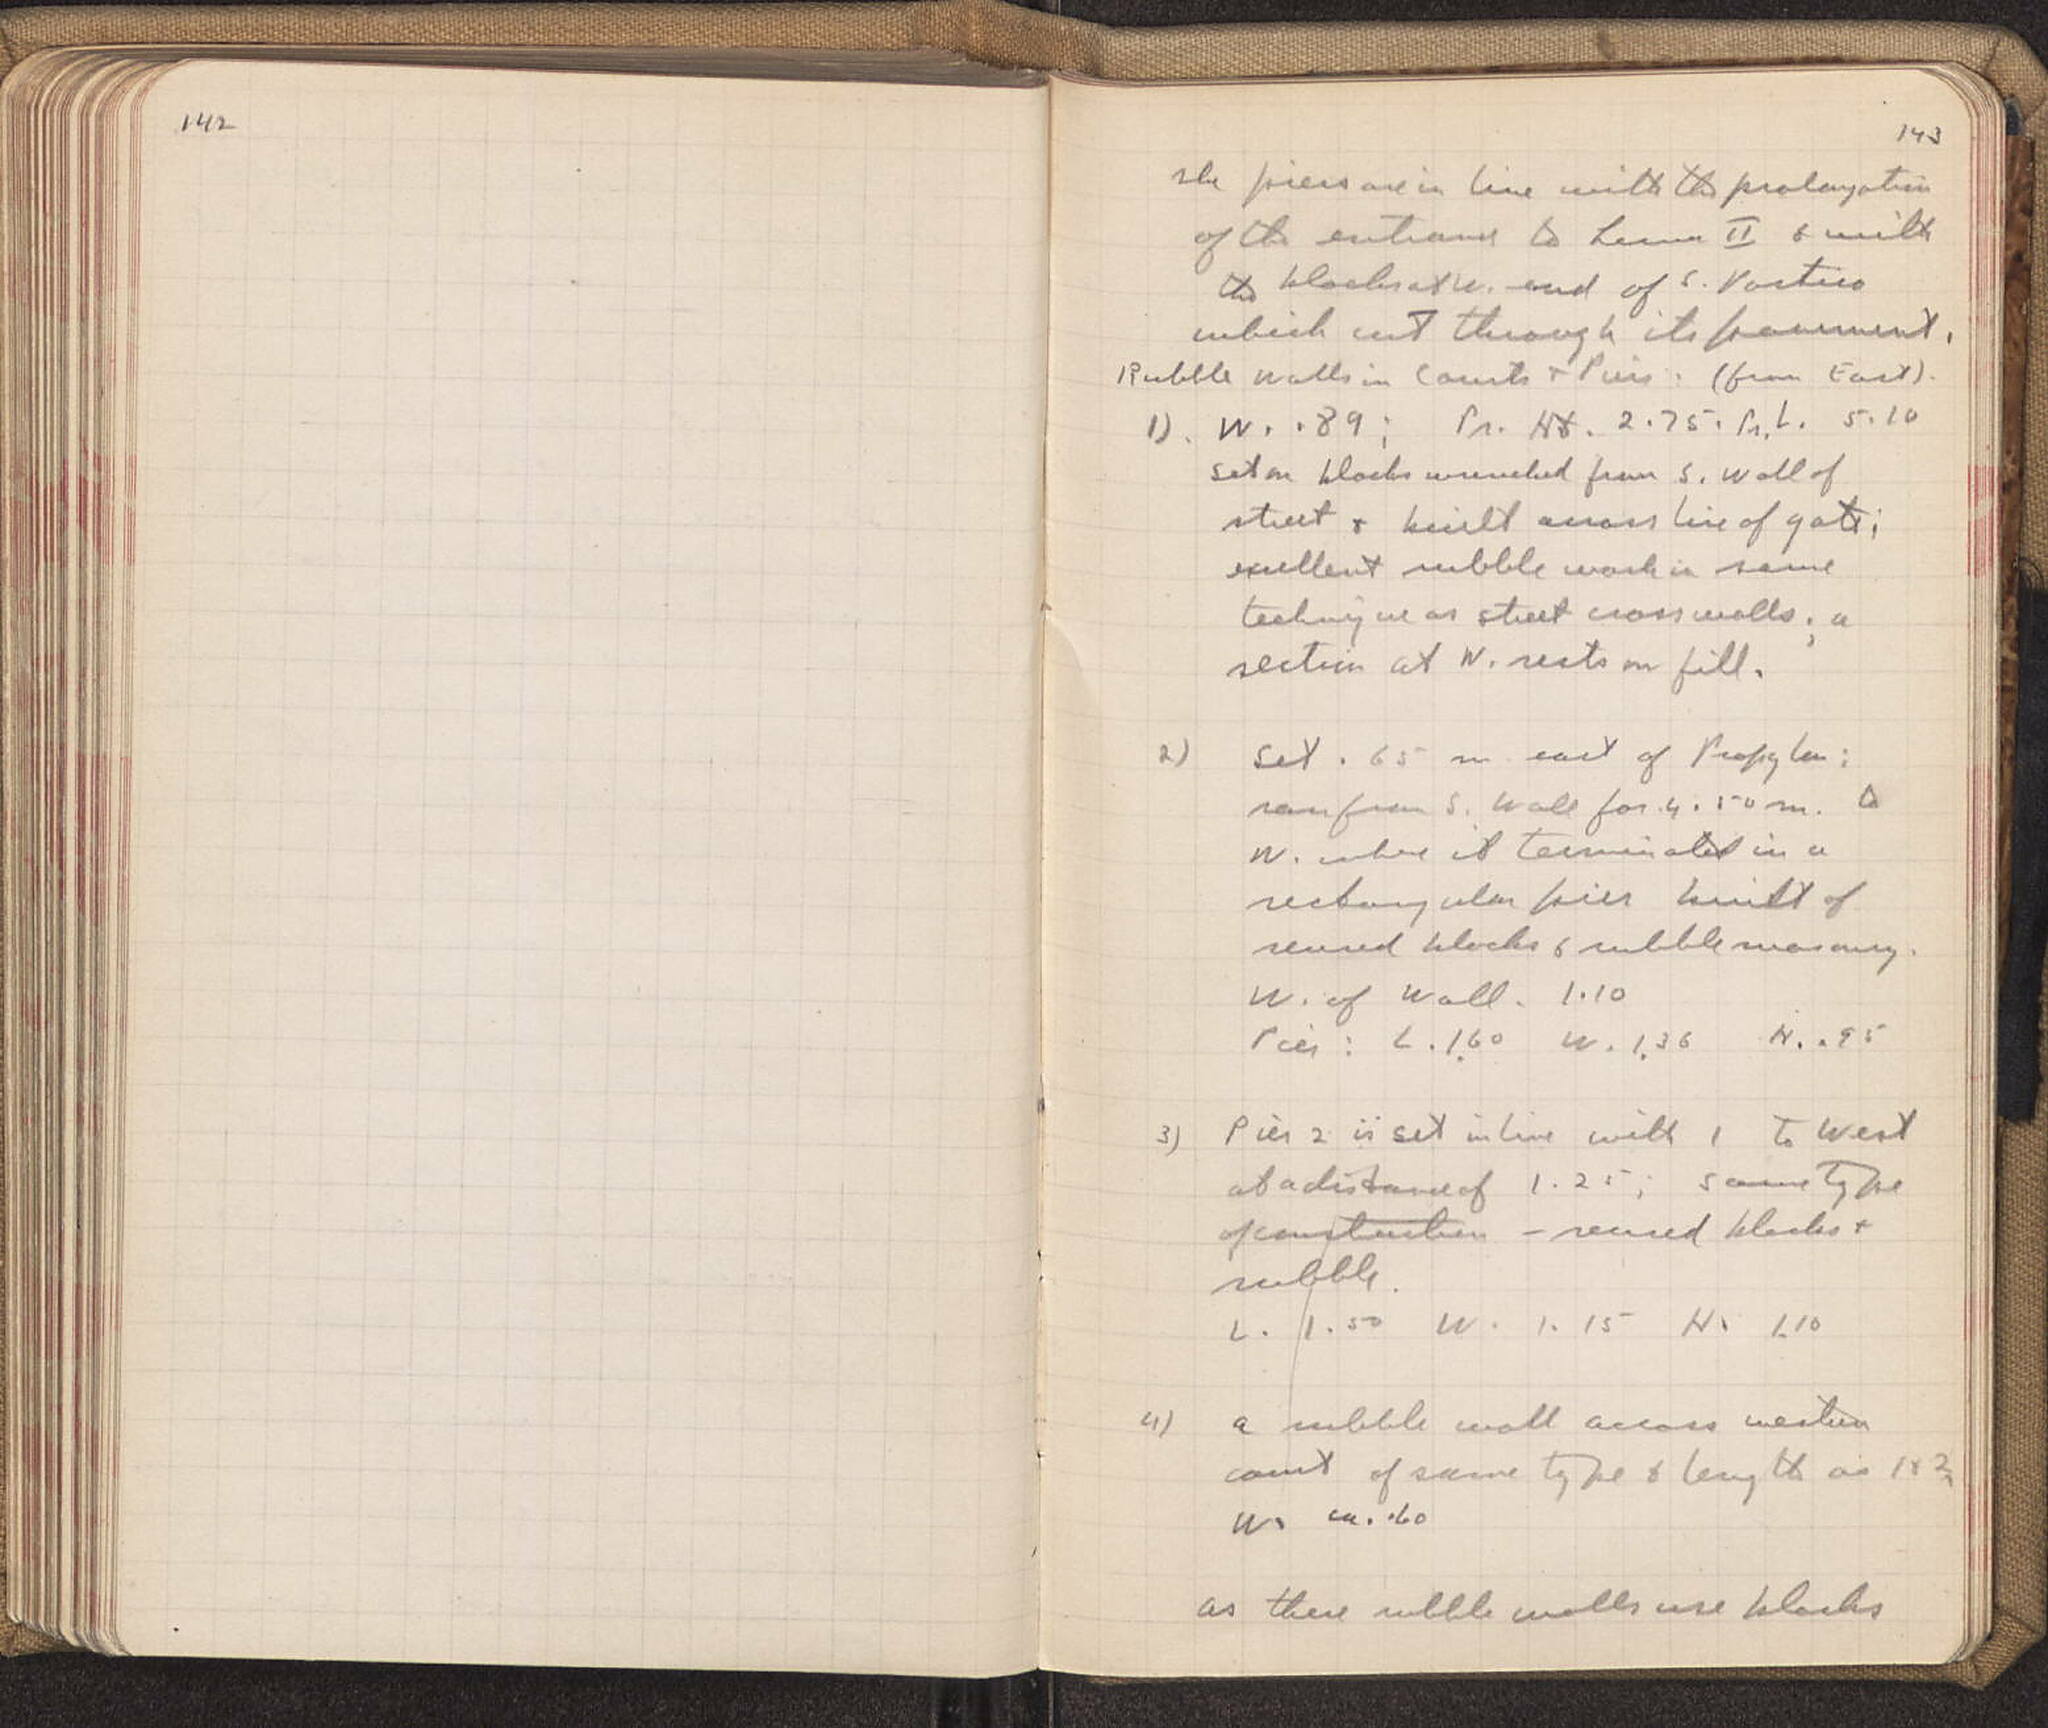 142
143
The piers are in line with the prolongation
of the entrance to House II & with
the blocks at W. end of S. Portico
which cut through its pavement.
Rubble walls in Courts & Piers: (from East).
1). W. .89; Pr. Ht. 2.75. Pr. L. 5.10
set on blocks wrenched from S. Wall of
street & built across line of gate;
excellent rubble work in same
technique as street cross walls; a
section at N. rests on fill.
2) Set .65 m east of Propylon;
ran from S. Wall for 4.50 m. to
N. where it terminated in a
rectangular pier built of
reused blocks & rubble masonry.
W. of Wall. 1.10
Pier: L. 1.60 W. 1.36 H. .95
3) Pier 2 is set in line with 1 to West
at a distance of 1.25; same type
of construction – reused blocks +
rubble.
L. 1.50 W. 1.15 H. 1.10
4) a rubble wall across western
court of same type & length as 1 & 2,
W. ca. .60
as these rubble walls use blocks